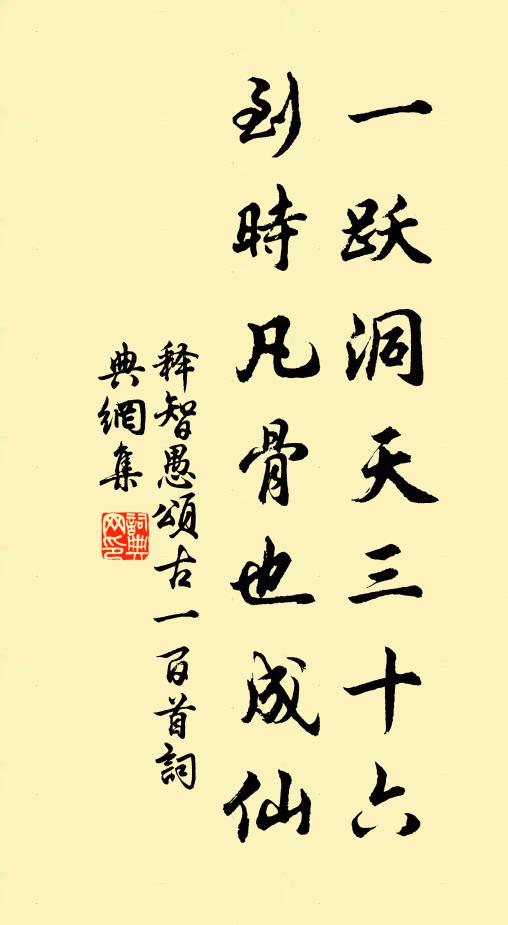 一跃洞天三十六
到時凡骨也成仙
释智愚頌古一百首詞
典網集
詞典
网印